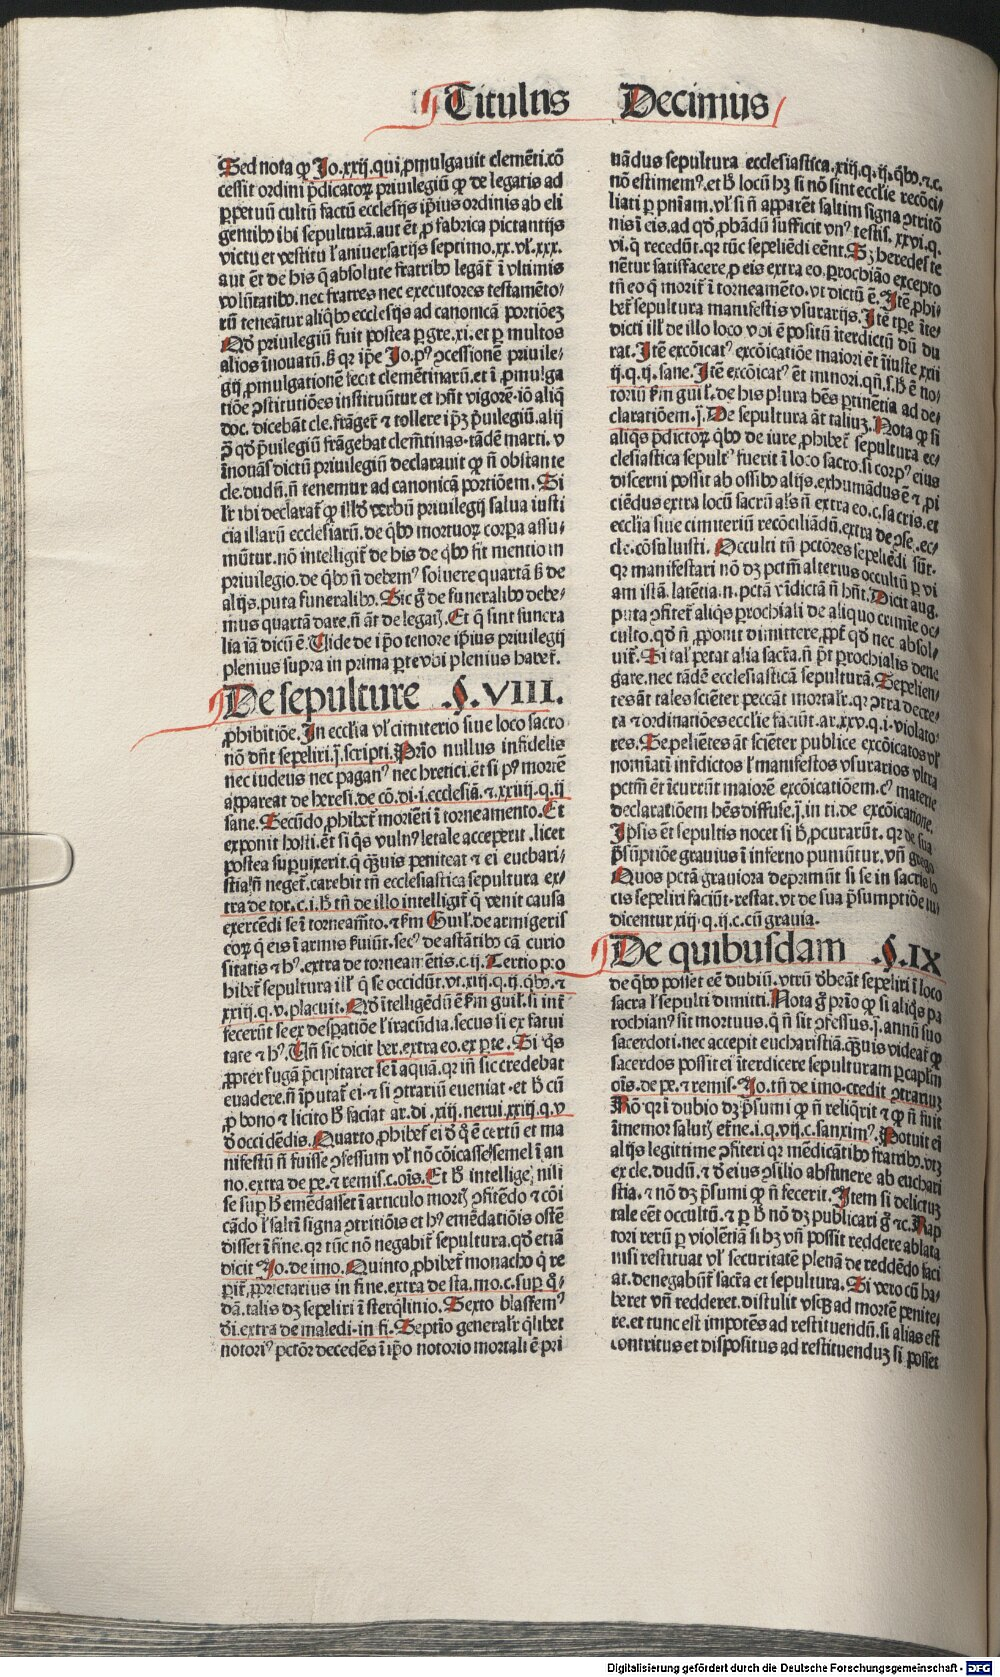 Titulus Decimus
Sed nota ꝙ Jo.xxij.qui ꝓmulgauit clemēti.cō
cessit ordini p̄dicatoꝝ priuilegiū ꝙ de legatis ad
ꝑpetuū cultū factū ecclesijs ip̄ius ordinis ab eli
gentibꝰ ibi sepulturā.aut ēt ꝓ fabrica pictantijs
victu et vestitu ł aniuersarijs septimo.xx.vł.xxx.
aut ēt de his q̄ absolute fratribꝰ legāt̄ ī vltimis
volūtatibꝰ.nec fratres nec executores testamēto/
rū teneātur aliqbꝰ ecclesijs ad canonicā portiōeꝫ
Qd̄ priuilegiū fuit postea ꝑ gre.xi.et ꝑ multos
alios īnouatū.ꝫ qꝛ ip̄e Jo.pꝰ ꝯcessionē priuile/
gij ꝓmulgationē fecit clemētinarū.et ī ꝓmulga
tiōe ꝯstitutiōes instituūtur et hn̄t vigorē.iō aliq̄
doc.dicebāt cle.frāger̄t ⁊ tollere ip̄ꝫ p̄uilegiū.alij
ꝙ qd̄ p̄uilegiū frāgebat clem̄tinas.tādē marti.v
īnouās dictū priuilegiū declarauit ꝙ n̄ obstante
cle.dudū.n̄ tenemur ad canonicā portiōem. Si
lr̄ ibi declarat̄ ꝙ illd̄ verbū priuilegij salua iusti
cia illarū ecclesiarū.de qbꝰ mortuoꝝ corꝑa assu/
mūtur.nō intelligit̄ de his de qbꝰ fit mentio in
priuilegio.de qbꝰ n̄ debemꝰ soluere quartā ꝫ de
alijs.puta funeralibꝰ. Sic g̊ de funeralibꝰ debe/
mus quartā dare.n̄ āt de legatꝭ. Et q̄ sint funera
lia iā dictū ē. Vide de ip̄o tenore ip̄ius priuilegij
plenius supra in prima ꝑte vbi plenius habet̄.
De sepulture .§.VIII.
ꝓhibitiōe. In ecclīa vł cimiterio siue loco sacro
nō dn̄t sepeliri.j.scripti. Prīo nullus infidelis
nec iudeus nec paganꝰ nec hretici.et si pꝰ mortē
appareat de heresi.de cō.di.i.ecclesiā.⁊.xxiiij.q.ij
sane. Secūdo ꝓhibet̄ moriēti ī torneamento. Et
exponit hosti.ēt si qs vulnꝰ letale acceperit.licet
postea suꝑuixerit.q̄ qꝫuis peniteat ⁊ ei euchari/
stia n̄ neget̄.carebit tn̄ ecclesiastica sepultura ex/
tra de tor.c.i.ꝫ tn̄ de illo intelligit̄ q̄ venit causa
exercēdi se ī torneam̄to.⁊ ẜm Guil.de armigeris
eoꝝ q̄ eis ī armis ẜuiūt.secꝰ de astātibꝰ cā curio
sitatis ⁊ hꝰ.extra de torneamētis.c.ij. Tertio pro
hibet̄ sepultura ill̓ q̄ se occidūt.vt.xiij.q.ij.qbꝰ.⁊
xxiij.q.v.placuit. Qd̄ ītelligēdū ē ẜm guil.si int̄
fecerūt se ex desꝑatiōe ł iracūdia.secus si ex fatui
tate ⁊ hꝰ. Vn̄ sic dicit ber.extra eo.ex ꝑte. Si qs
ꝓpter fugā p̄cipitaret se ī aquā.qꝛ in̄ sic credebat
euadere.n̄ īputat̄ ei.⁊ si ꝯtrariū eueniat.et ꝫ cū
ꝓ bono ⁊ licito ꝫ faciat ar.di.xiij.nerui.xxiij.q.v
d̄ occidēdis. Quarto ꝓhibet̄ ei d̄ q̊ ē certū et ma
nifestū n̄ fuisse ꝯfessum vł nō cōicasse semel ī an
no.extra de pe.⁊ remis.c.oīs. Et ꝫ intellige nisi
se suꝑ ꝫ emēdasset ī articulo mortꝭ ꝯfitēdo ⁊ cōi
cādo ł saltī signa ꝯtritiōis et hꝰ emēdatiōis ostē
disset ī fine.qꝛ tūc nō negabit̄ sepultura.qd̄ etiā
dicit Jo.de imo. Quinto ꝓhibet̄ monacho q̄ re
ꝑit̄ ꝓprietarius in fine.extra de sta.mo.c.suꝑ q̊/
dā.talis dꝫ sepeliri ī stercqlinio. Sexto blasfemꝰ
di.extra de maledi.in fi. Septīo generalr̄ qlibet
notoriꝰ pctōr decedēs ī ip̄o notorio mortali ē pri
uādus sepultura ecclesiastica.xiij.q.ij.qbꝰ.⁊.c.
nō estimemꝰ.et ꝫ locū hꝫ si nō sint ecclīe recōci/
liati ꝑ pn̄iam.vł si n̄ apparēt saltim signa ꝯtritō
nis ī eis.ad qd̄ ꝓbādū sufficit vnꝰ testis.xxvi.q.
vi.q̄ recedūt.qꝛ tūc sepeliēdi eēnt. Sꝫ heredes te
nētur satisfacere ꝓ eis extra eo.ꝑrochiāo excepto
tn̄ eo q̄ morit̄ ī torneamēto.vt dictū ē. Itē ꝓhi/
bet̄ sepultura manifestis vsurarijs. Itē tꝑe īte/
dicti ill̓ de illo loco vbi ē positū īterdictū dū du
rat. Itē excōicatꝰ excōicatiōe maiori ēt īiuste.xxij
ij.q.ij.sane. Itē excōicatꝰ ēt minori.qn̄.s.ꝫ ē no/
toriū ẜm guil̓.de his plura hēs ꝑtinētia ad de/
claratiōem.j. De sepultura āt taliuꝫ. Nota ꝙ si
aliqs p̄dictoꝝ qbꝰ de iure ꝓhibet̄ sepultura ec/
clesiastica sepultꝰ fuerit ī loco sacro.si corpꝰ eius
discerni possit ab ossibꝰ alijs.exhumādus ē ⁊ ꝓi
ciēdus extra locū sacrū al̓s n̄ extra eo.c.sacris.et
ecclīa siue cimiteriū recōciliādū.extra de ꝯse.ec/
cle.cōsuluisti. Occulti tn̄ pctōres sepeliēdi sūt.
qꝛ manifestari nō dꝫ pctm̄ alterius occultū ꝑ vi
am istā.latētia.n.pctā vīdictā n̄ hn̄t. Dicit aug.
puta ꝯfitet̄ aliqs ꝑrochiali de aliquo crimīe oc/
culto.qd̄ n̄ ꝓponit dimittere.ꝓpt̄ qd̄ nec absol/
uit̄. Si tal̓ petat alia sacr̄a.n̄ p̄t ꝑrochialis dene
gare.nec tādē ecclesiasticā sepulturā. Sepelien/
tes āt tales sciēter peccāt mortalr̄.qꝛ ꝯtra decre/
ta ⁊ ordinatiōes ecclīe faciūt.ar.xxv.q.i.violato/
res. Sepeliētes āt sciēter publice excōicatos vł
nomīati int̄dictos ł manifestos vsurarios vltra
pctm̄ ēt īcurrūt maiorē excōicatiōem.cꝰ materie
declaratiōem hēs diffuse.j.in ti.de excōicatione.
Ipsis ēt sepultis nocet si ꝫ ꝓcurarūt.qꝛ de sua
p̄sūptiōe grauius ī inferno puniūtur.vn̄ grego
Quos pctā grauiora deprimūt si se in sacris lo
cis sepeliri faciūt.restat.vt de sua p̄sumptiōe iu/
dicentur xiij.q.ij.c.cū grauia.
De quibusdam .§.IX
de qbꝰ posset eē dubiū.vtrū d̄beāt sepeliri ī loco
sacra ł sepulti dimitti. Nota g̊ prīo ꝙ si aliqs pa
rochianꝰ sit mortuus.q̄ n̄ sit ꝯfessus.j.annū suo
sacerdoti.nec accepit eucharistiā.qꝫuis videat̄ ꝙ
sacerdos possit ei īterdicere sepulturam ꝑ capłm
oīs.de pe.⁊ remis. Jo.tn̄ de imo.credit ꝯtrariuꝫ
Rō.qꝛ ī dubio dꝫ p̄sumi ꝙ n̄ reliq̄rit ⁊ ꝙ n̄ fuit
īmemor salutꝭ et̄ne.i.q.vij.c.sanximꝰ. Potuit ei
alijs legittime ꝯfiteri qꝛ mēdicātibꝰ fratribꝰ.vtꝫ
ex cle.dudū.⁊ d̄ eius ꝯsilio abstinere ab euchari
stia.⁊ nō dꝫ p̄sumi ꝙ n̄ fecerit. Item si delictuꝫ
tale eēt occultū.⁊ ꝑ ꝫ nō dꝫ publicari g̊ ⁊c. Rap
tori rerū ꝑ violētiā si hꝫ vn̄ possit reddere ablata
nisi restituat vł securitatē plenā de reddēdo faci
at.denegabūt̄ sacr̄a et sepultura. Si vero cū ha/
beret vn̄ redderet.distulit vsqꝫ ad mortē penite/
re.et tunc est impotēs ad restituendū.si alias est
contritus et dispositus ad restituenduꝫ si posset
Digitalisierung gefördert durch die Deutsche Forschungsgemeinschaft - DFG